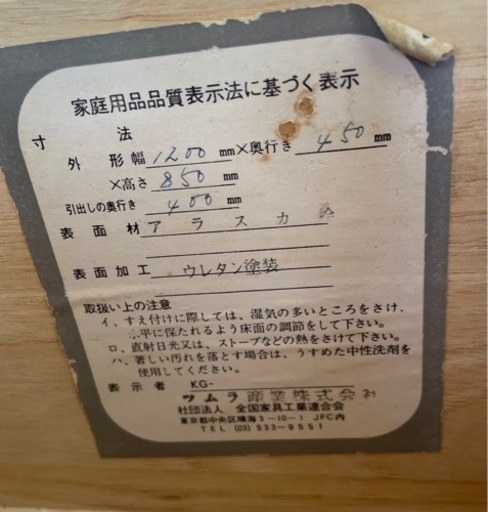 家庭用品品質表示法に基づく表示
寸法
外形幅 1200 mm ×奥行き 450 mm
×高さ 850 mm
引出しの奥行き 400 mm
表面材 アラスカ
表面加工 ウレタン塗装
取扱い上の注意
イ、すえ付けに際しては、湿気の多いところをさけ、
平に保たれるよう床面の調節をして下さい。
ロ、直射日光又は、ストーブなどの熱をさけて下さい。
ハ、著しい汚れを落とす場合は、うすめた中性洗剤を
使用してください。
表示者 KG-
ツムラ産業株式会社
社団法人 全国家具工業連合会
東京都中央区晴海3-10-1 JFC内
TEL (03) 533-9551